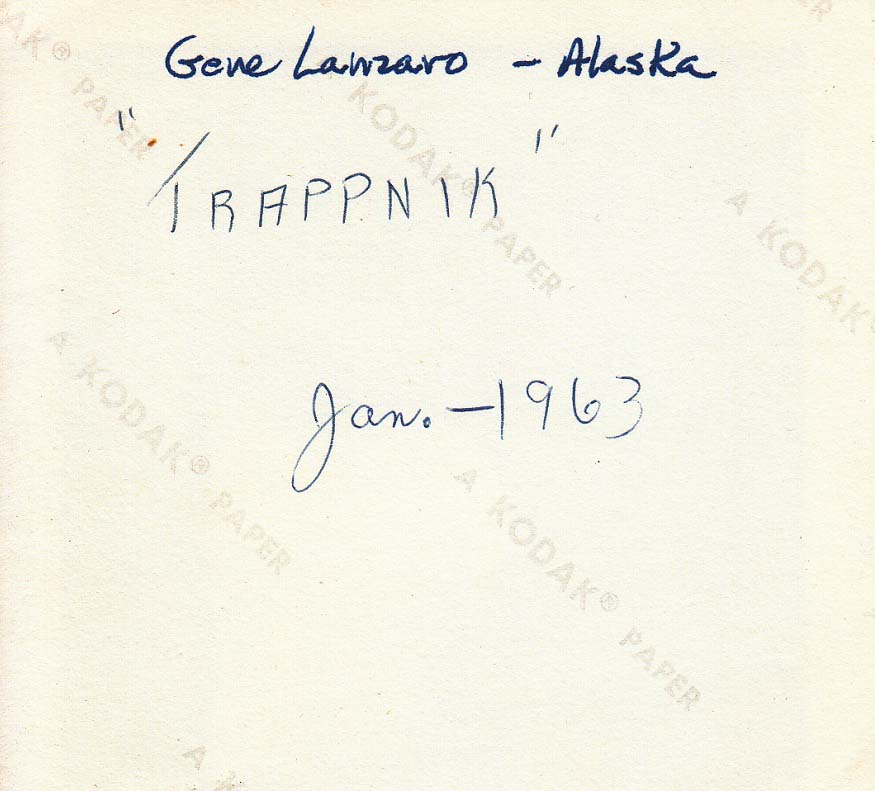 Gene Lanzaro - Alaska
"TRAPPNIK"
Jan. - 1963
A KODAK® PAPER
A KODAK® PAPER
A KODAK® PAPER
A KODAK® PAPER
A KODAK®